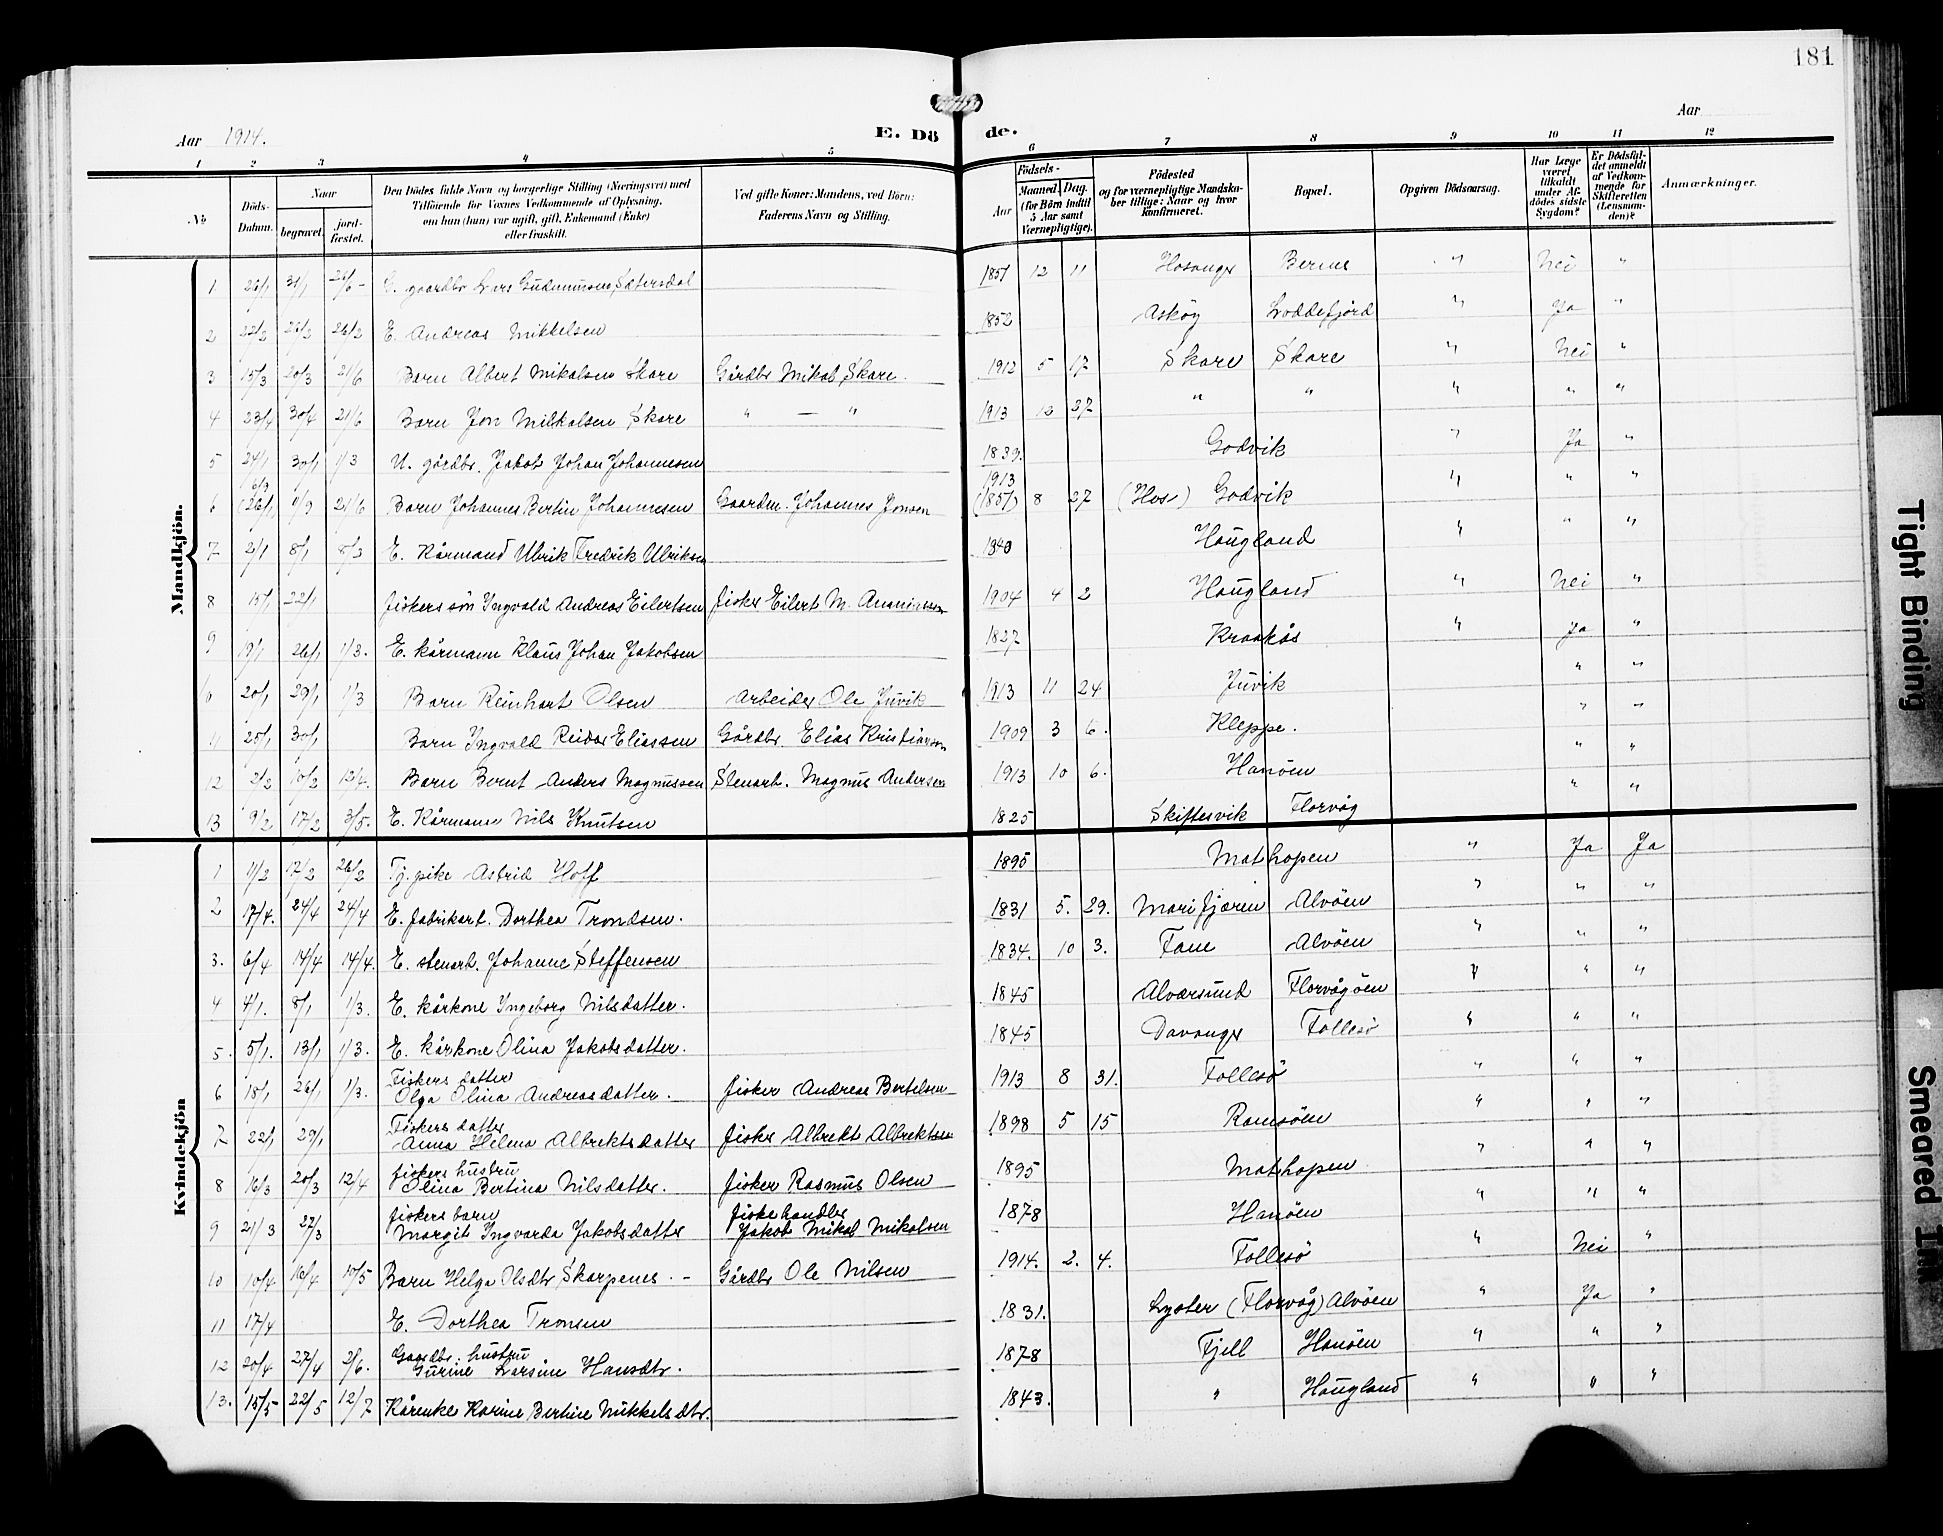 181
Aar 1914. E. Dö de. Aar
1 2 3 4 5 6 7 8 9 10 11 12
No
Döds-Datum.
Naar begravet. jordfæstet.
Den Dödes fulde Navn og borgerlige Stilling (Næringsvei) med Tilföiende for Voxnes Vedkommende af Oplysning, om han (hun) var ugift, gift, Enkemand (Enke) eller fraskilt.
Ved gifte Koner: Mandens, ved Börn: Faderens Navn og Stilling.
Födsels-
Aar Maaned. Dag. (for Börn indtil 5 Aar samt Værnepligtige).
Födested og for værnepligtige Mandskaber tillige: Naar og hvor konfirmeret.
Bopæl.
Opgiven Dödsaarsag.
Har Læge været tilkaldt under Afdödes sidste Sygdom?
Er Dödsfaldet anmeldt af Vedkommende for Skifteretten (Lensmanden)?
Anmærkninger.
Mandkjön.
1 26/1 31/1 21/6 - gaardbr Lars Gudmunsen Sætersdal 1851 12 11 Hosanger Berne " Nei "
2 22/2 26/2 26/2 E. Andreas Mikkelsen 1852 Askøy Loddefjord " Ja "
3 15/3 20/3 21/6 Barn Albert Mikalsen Skare Gårdbr Mikal Skare. 1912 5 17 Skare Skare " Nei "
4 23/4 30/4 21/6 Barn Jon Mikkalsen Skare " — " 1913 12 27 " " " " "
5 24/1 30/1 1/3 U. gårdbr. Jakob Johan Johannesen 1839. Godvik " Ja "
6 6/9 (26/1 11/9 21/6 Barn Johannes Bertin Johannesen Gaardm. Johannes Jonsen 1913 (1851) 8 27 (Hos) Godvik " " "
7 2/1 8/1 8/3 E. Kårmand Ulrik Fredrik Ulriksen 1840 Haugland " " "
8 15/1 22/1 fiskers søn Ingvald Andreas Eilertsen fisker Eilert M. 1904 4 2 Haugland " Nei "
9 19/1 26/1 1/3. E. kårmann Klaus Johan Jakobsen 1827 Kraakås " Ja "
10 20/1 29/1 1/3 Barn Reinhart Olsen Arbeider Ole Juvik 1913 11 24 Juvik " "
11 25/1 30/1 Barn Ingvald Reidar Eliassen Gårdbr. Elias Kristianson 1909 3 6. Kleppe. " "
12 2/2 10/2 12/4. Barn Bernt Anders Magnussen Stenarb. Magnus Andersen 1913 10 6. Hanöen " "
13 9/2 17/2 3/5. E. Kårmann Nils Knutsen 1825 Skiftesvik Florvåg " "
Kvindekjön
1 11/2 17/2 26/2 Tj. pike Astrid Hoff 1895 Mathopen " Ja Ja
2 17/4. 24/4 24/4 E. fabrikarb. Dorthea Trondsen. 1831 5. 29. Marifjæren Alvöen " " "
3. 6/4 14/4 14/4. E. stenarb. Johanne Steffensen 1834. 10 3. Fane Alvöen " " "
4 4/1. 8/1 1/3. E. kårkone Ingeborg Nilsdatter. 1845 Alversund Florvågöen " " "
5. 5/1. 13/1 1/3. E. kårkone Olina Jakobsdatter. 1845 Davanger Follesö " " "
6 18/1 26/1 1/3. Fiskers datter Olga Olina Andreasdatter. fisker Andreas Bertelsen 1913 8 31. Follesö " " "
7 22/1 29/1 Fiskers datter Anna Helena Albrektsdatter fisker Albrekt Albrektsen 1898 5 15 Ramsöen " " "
8 16/3 20/3 12/4 fiskers hustru Olina Bertina Nilsdatter. fisker Rasmus Olsen 1895 Mathopen " " "
9 21/3 27/3 fiskers barn Margit Ingvarda Jakobsdatter fiskehandler Jakob Mikal Mikalsen 1878 Hanöen " " "
10 10/4 16/4 10/5 Barn Helga Olsdtr Skarpenes. - Gårdbr Ole Nilsen 1914. 2. 4. Follesö " Nei "
11 17/4 E. Dorthea Tronsen 1831. Lyster (Florvåg) Alvöen " Ja "
12 20/4 27/4 2/6. Gaardbr. hustru Gurine Larsine Hansdtr. 1878 Fjell Hanöen " " "
13. 15/5 22/5 12/7 Kårenke Karine Bertine Mikkelsdtr. 1843. " Haugland " " "
Tight Binding
Smeared Ink